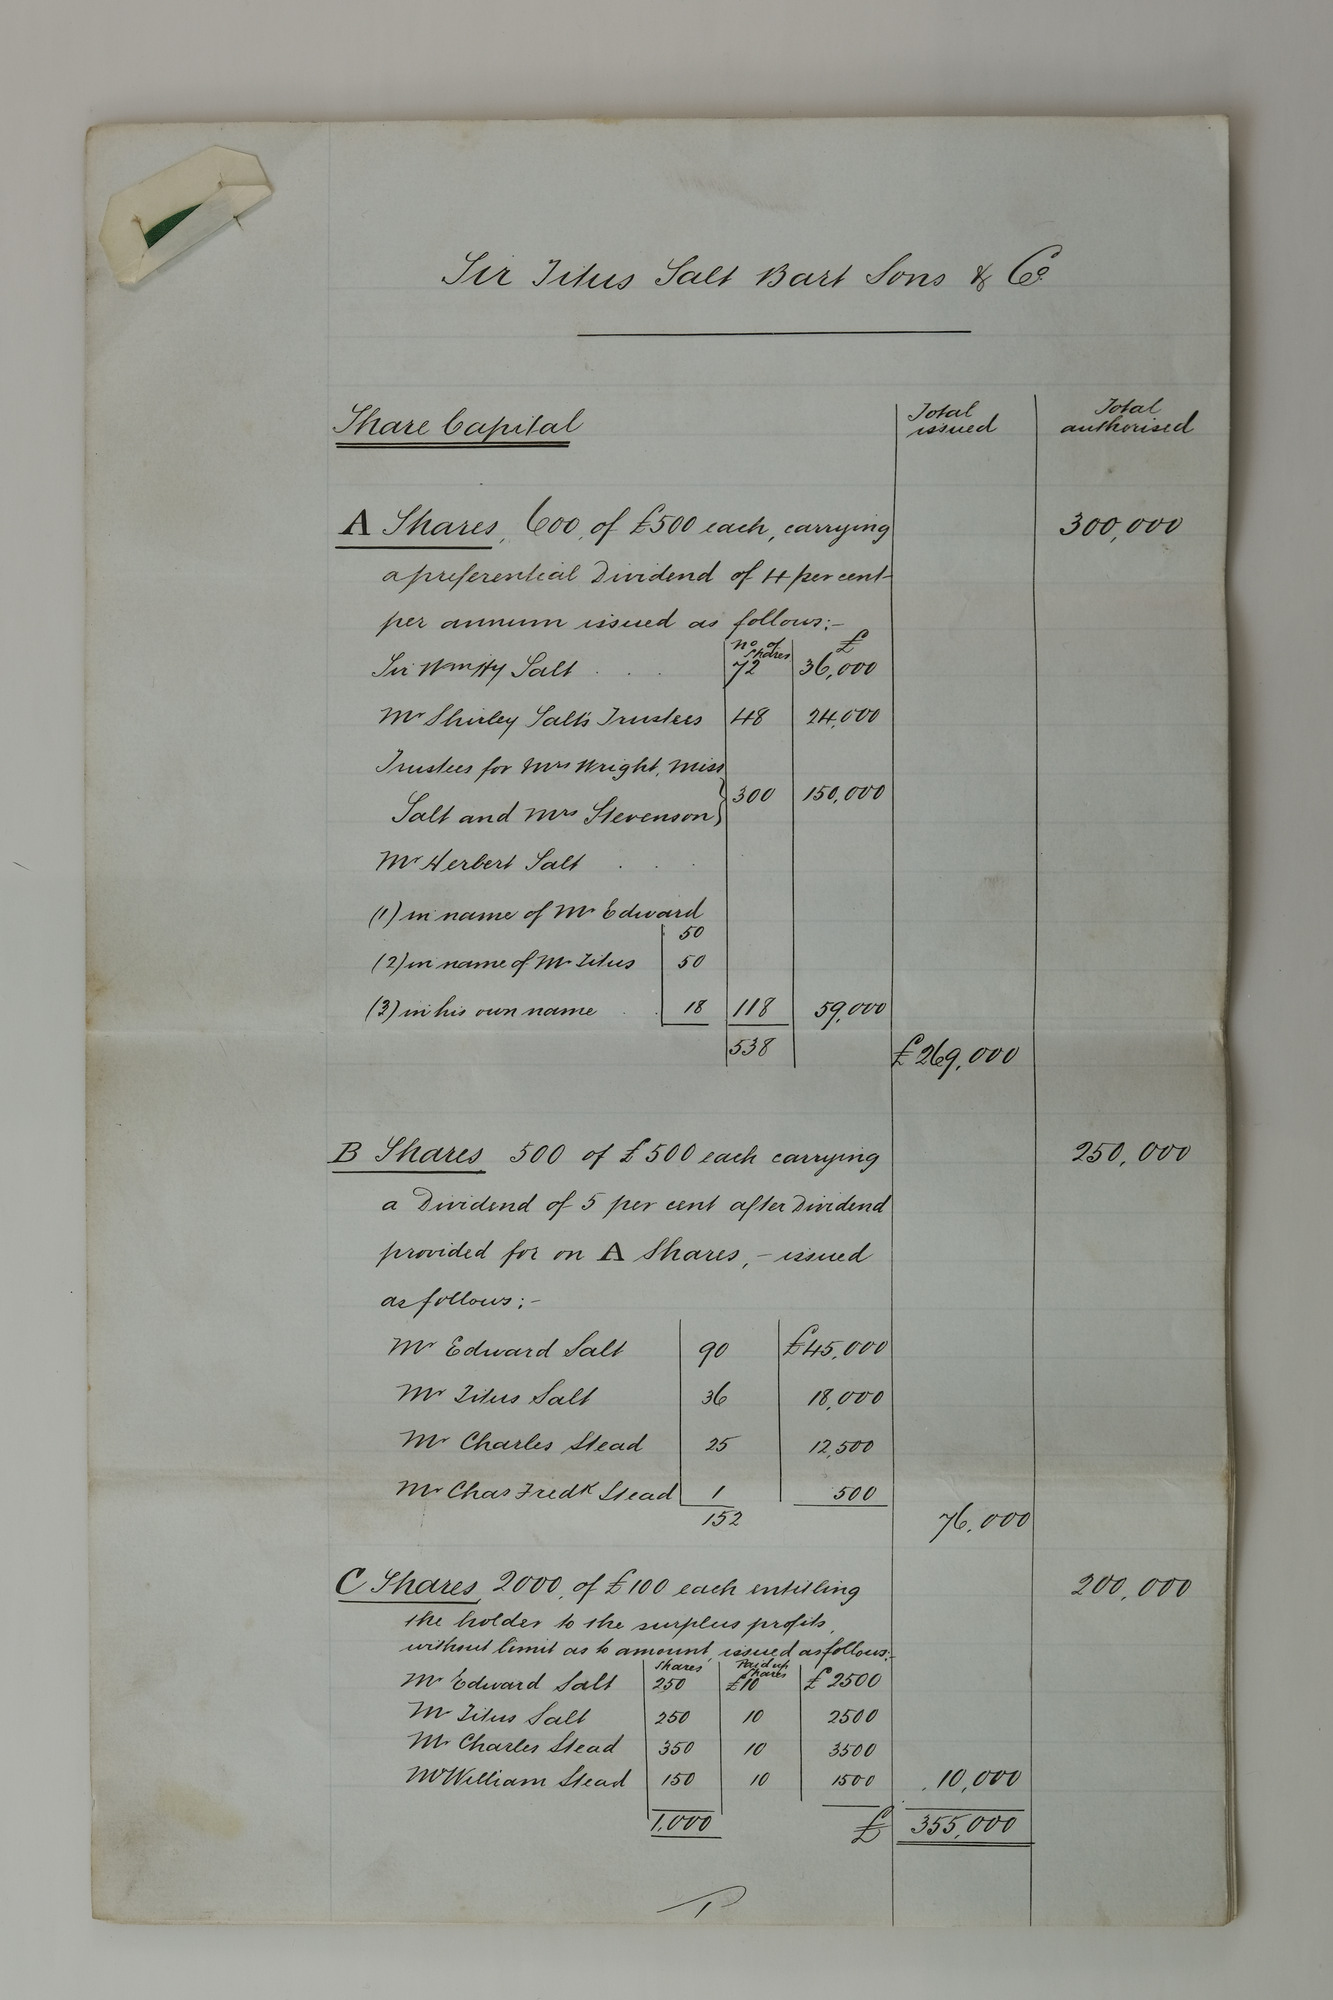 Sir Titus Salt Bart Sons & Co
Share Capital
Total issued
Total authorised
A Shares, 600, of £500 each, carrying 300,000
a preferential Dividend of 4 per cent
per annum issued as follows:-
No of Shares £
Sir Wm Hy Salt . . . 72 36,000
Mr Shirley Salt's Trustees 48 24,000
Trustees for Mrs Wright, Miss
Salt and Mrs Stevenson} 300 150,000
Mr Herbert Salt . . .
(1) in name of Mr Edward
50
(2) in name of Mr Titus 50
(3) in his own name . . 18 118 59,000
538 £269,000
B Shares 500 of £500 each carrying 250,000
a Dividend of 5 per cent after Dividend
provided for on A Shares, - issued
as follows:-
Mr Edward Salt 90 £45,000
Mr Titus Salt 36 18,000
Mr Charles Stead 25 12,500
Mr Chas Fredk Stead 1 500
152 76,000
C Shares, 2000, of £100 each entitling 200,000
the holder to the surplus profits,
without limit as to amount, issued as follows:-
Shares Paid up Shares
Mr Edward Salt 250 £10 £2500
Mr Titus Salt 250 10 2500
Mr Charles Stead 350 10 3500
Mr William Stead 150 10 1500 10,000
1,000 £ 355,000
1